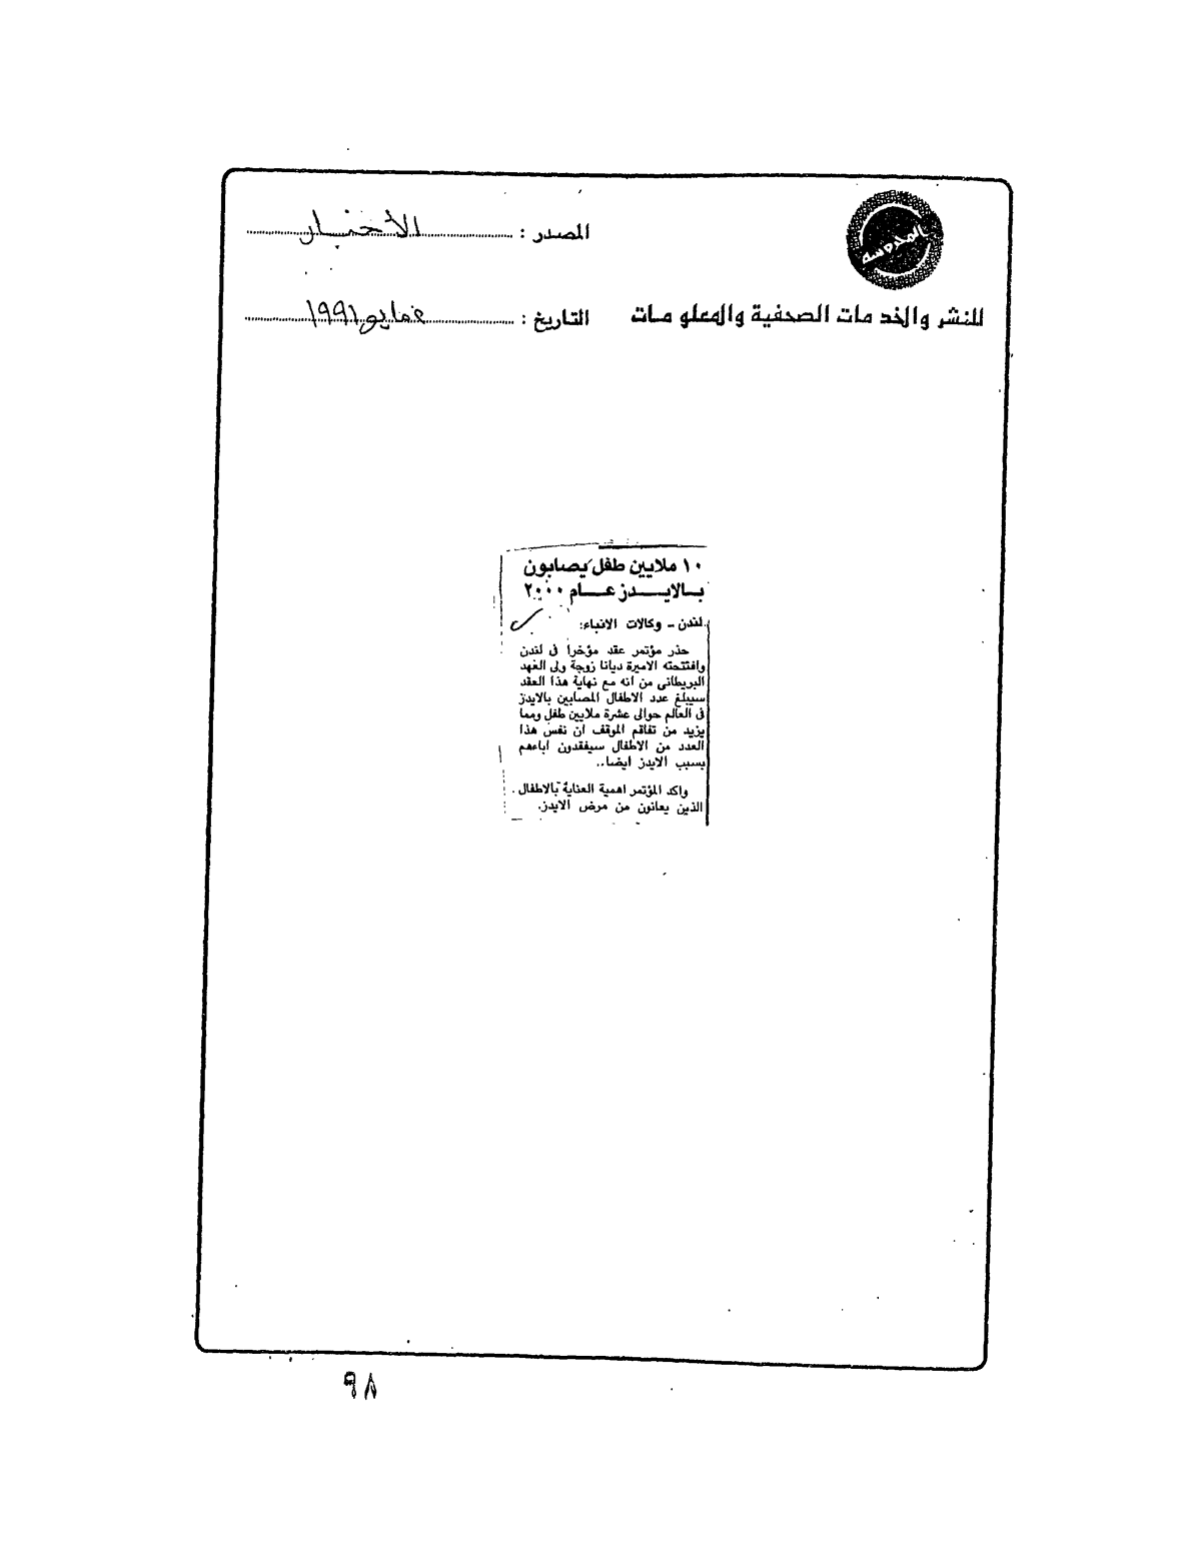 المحروسة
المصدر : الأخبار
للنشر والخدمات الصحفية والمعلومات
التاريخ : مايو ١٩٩١
١٠ ملايين طفل يصابون
بالايدز عام ٢٠٠٠
لندن - وكالات الانباء:
حذر مؤتمر عقد مؤخرا فى لندن
وافتتحته الاميرة ديانا زوجة ولى العهد
البريطانى من انه مع نهاية هذا العقد
سيبلغ عدد الاطفال المصابين بالايدز
فى العالم حوالى عشرة ملايين طفل ومما
يزيد من تفاقم الموقف ان نفس هذا
العدد من الاطفال سيفقدون اباءهم
بسبب الايدز ايضا..
واكد المؤتمر اهمية العناية بالاطفال
الذين يعانون من مرض الايدز.
٩٨